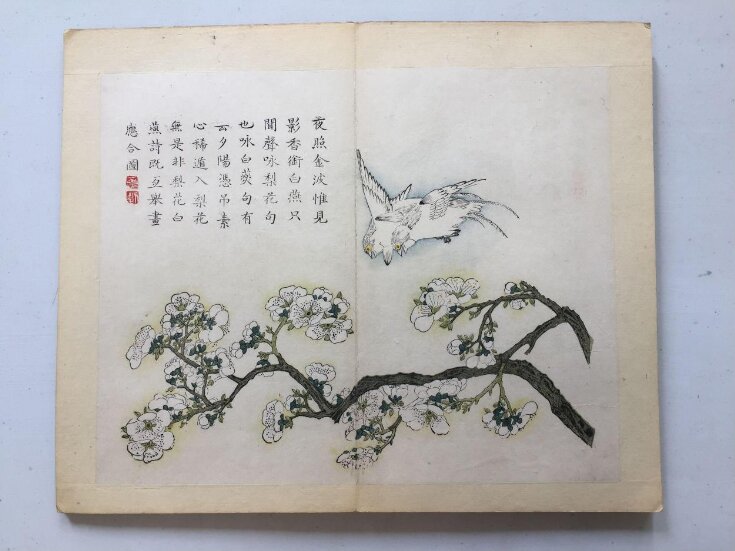 夜照金波惟見
影香銜白燕只
聞聲咏梨花句
也咏白燕句有
云夕陽憑吊素
心稀遁入梨花
無是非梨花白
燕詩既互舉畫
應合圖